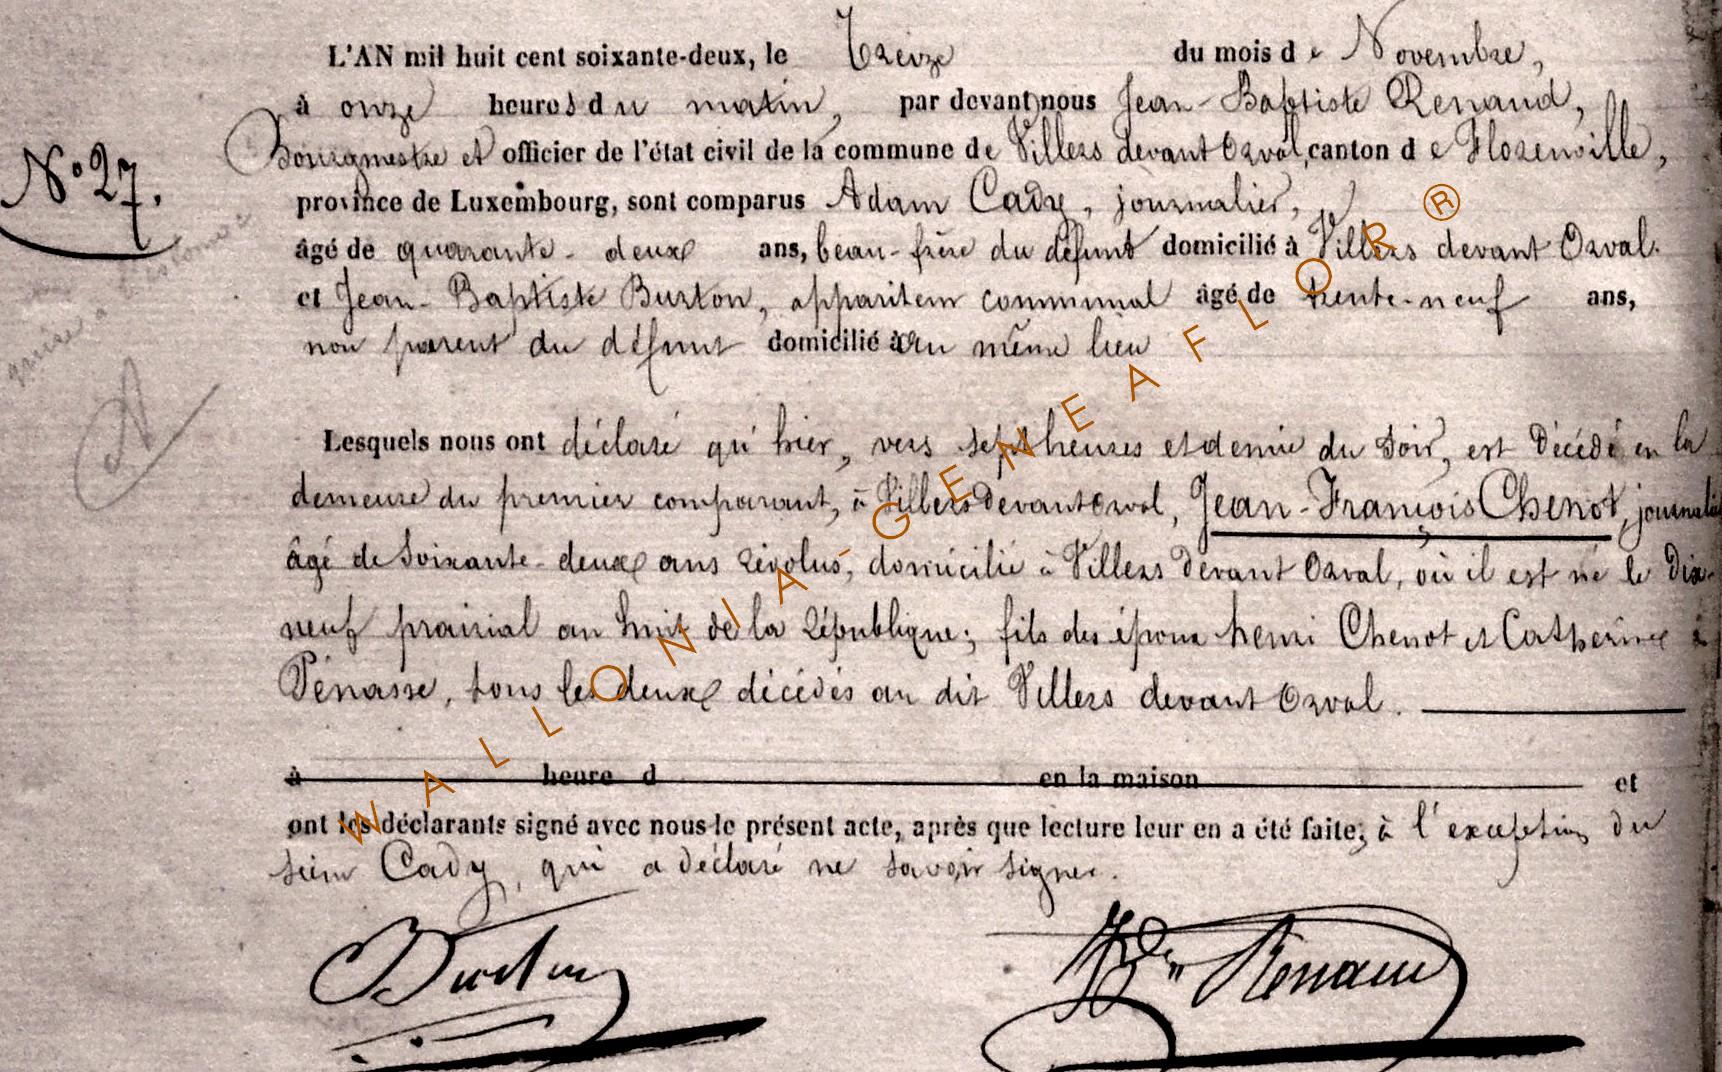 L'AN mil huit cent soixante-deux, le Treize du mois de Novembre,
à onze heures du matin, par devant nous Jean-Baptiste Renaud,
Bourgmestre et officier de l'état civil de la commune de Villers devant Orval, canton de Florenville,
N° 27.
province de Luxembourg, sont comparus Adam Cady, journalier,
âgé de quarante-deux ans, beau-frère du défunt domicilié à Villers devant Orval.
et Jean-Baptiste Burton, appariteur communal âgé de trente-neuf ans,
non parent du défunt domicilié à au même lieu
Lesquels nous ont déclaré qu'hier, vers sept heures et demie du soir, est décédé en la
demeure du premier comparant, à Villers devant Orval, Jean-François Chenot, journalier
âgé de soixante-deux ans révolus, domicilié à Villers devant Orval, où il est né le dix-
neuf prairial an huit de la république; fils des époux henri Chenot et Catherine
Pénasse, tous les deux décédés au dit Villers devant Orval.
à heure d en la maison et
ont les déclarants signé avec nous le présent acte, après que lecture leur en a été faite, à l'exception du
sieur Cady, qui a déclaré ne savoir signer.
Burton Renaud
WALLONIA-GENEAFLOR®